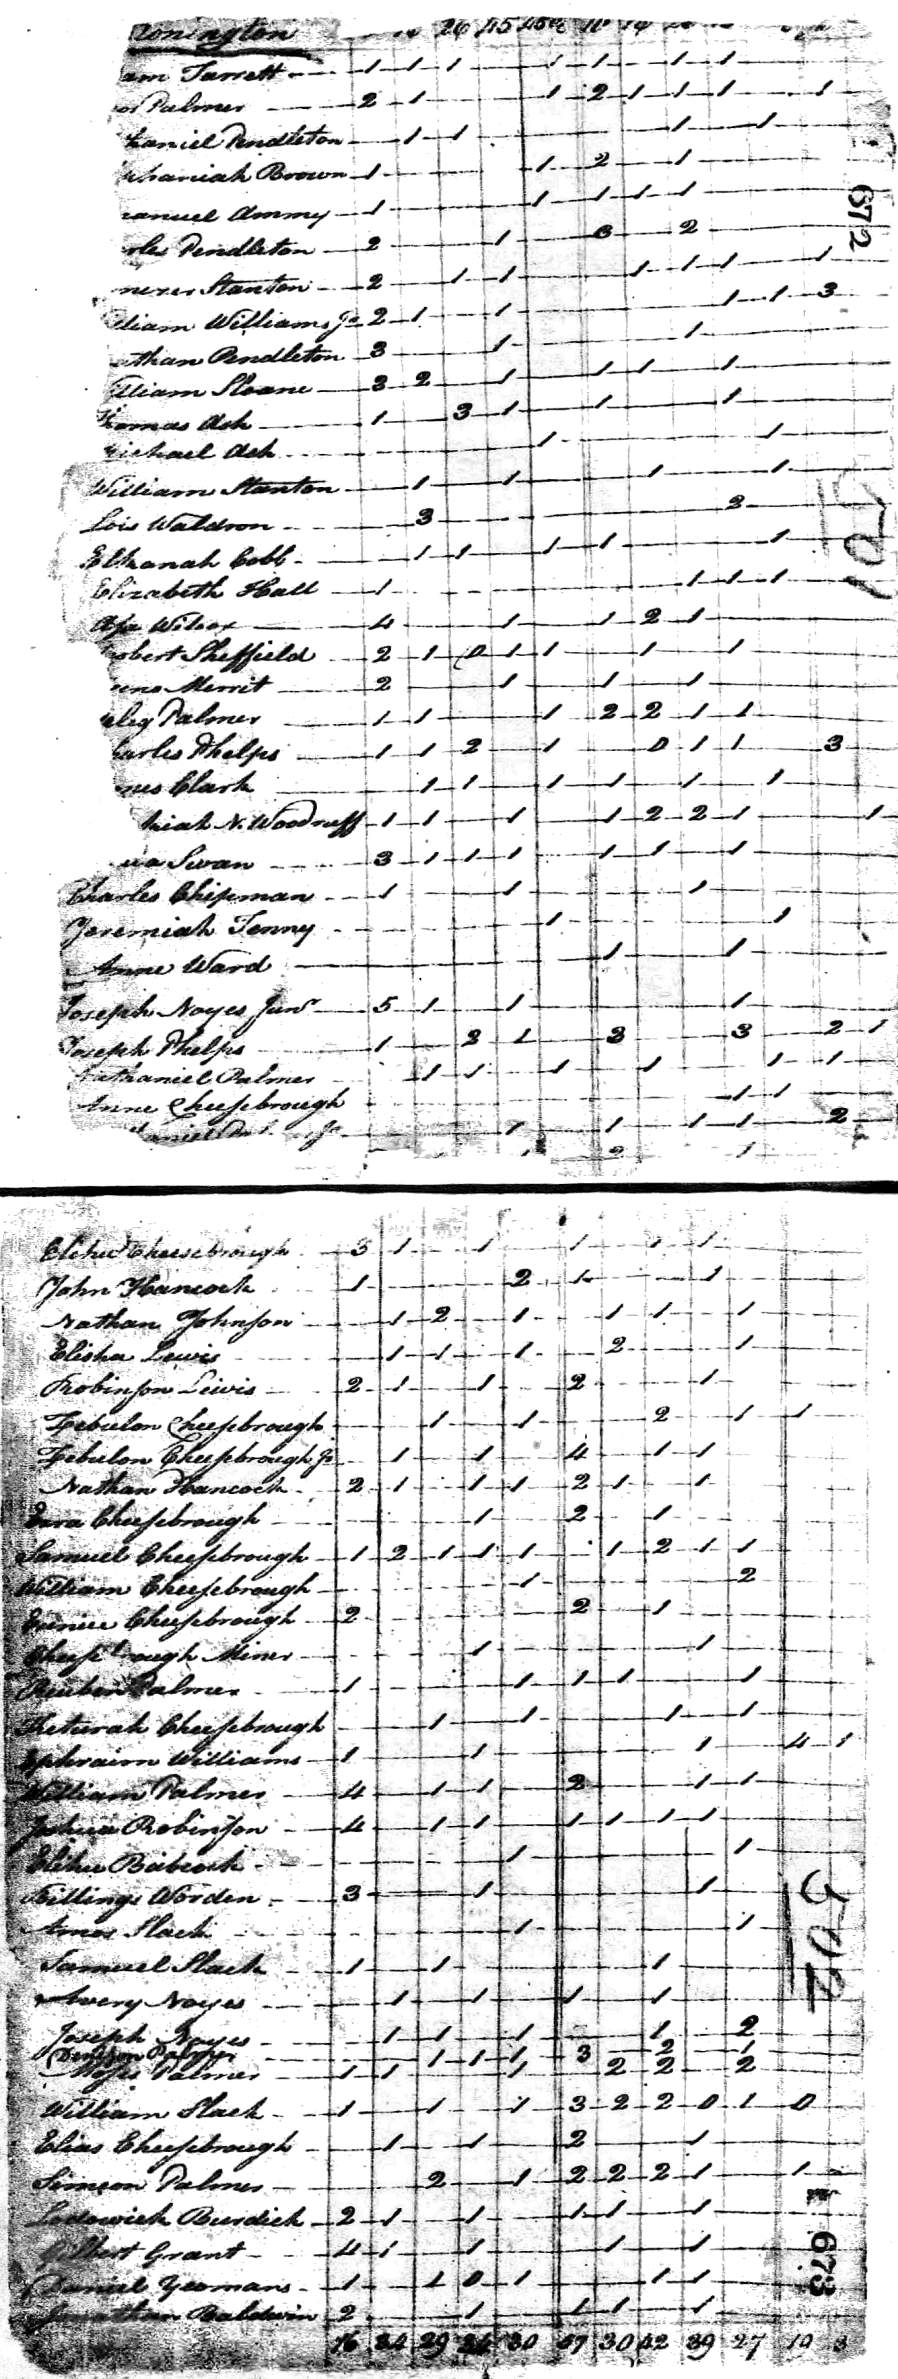 Stonington 26 45 45&c 10 16
am Jarrett 1 1 1 1 1 1 1
or Palmer 2 1 1 2 1 1 1 1
thaniel Pendleton 1 1 1 1
phaniah Brown 1 1 2 1
anuel Ammy 1 1 1 1 1
rles Pendleton 2 1 3 2
nezer Stanton 2 1 1 1 1 1 1
lliam Williams Jr 2 1 1 1 1 3
athan Pendleton 3 1 1
illiam Sloane 3 2 1 1 1 1
Thomas Ash 1 3 1 1 1
Michael Ash 1 1
William Stanton 1 1 1 1
Lois Waldron 3 2
Elkanah Cobb 1 1 1 1 1
Elizabeth Hall 1 1 1 1
Asa Wilcox 4 1 1 2 1
obert Sheffield 2 1 0 1 1 1 1
Merrit 2 1 1 1
eleg Palmer 1 1 1 2 2 1 1
harles Phelps 1 1 2 1 0 1 1 3
mes Clark 1 1 1 1 1 1
kiah N. Woodruff 1 1 1 1 2 2 1 1
Swan 3 1 1 1 1 1 1
Charles Chipman 1 1 1
Jeremiah Tenny 1 1
Anne Ward 1 1
Joseph Noyes Junr 5 1 1 1
Joseph Phelps 1 2 1 3 3 2 1
Nathaniel Palmer 1 1 1 1 1 1
Anne Cheesebrough 1 1
aniel Jr 1 1 1 1 2
1 2 1
672
501
Elihu Cheesebrough 3 1 1 1 1 1
John Hancock 1 2 1 1
Nathan Johnson 1 2 1 1 1 1
Elisha Lewis 1 1 1 2 1
Robinson Lewis 2 1 1 2 1
Zebulon Cheesebrough 1 1 2 1 1
Zebulon Cheesebrough Jr 1 1 4 1 1
Nathan Hancock 2 1 1 1 2 1 1
Ezra Cheesebrough 1 2 1
Samuel Cheesebrough 1 2 1 1 1 1 2 1 1
William Cheesebrough 1 2
Eunice Cheesebrough 2 2 1
Cheesebrough Miner 1 1
Reuben Palmer 1 1 1 1 1
Keturah Cheesebrough 1 1 1 1
Ephraim Williams 1 1 1 4 1
William Palmer 4 1 1 2 1 1
Joshua Robinson 4 1 1 1 1 1 1
Elihu Babcock 1 1
Billings Worden 3 1 1
Amos Slack 1 1
Samuel Slack 1 1 1
Avery Noyes 1 1 1 1
Joseph Noyes 1 1 1 1 2
Denison Palmer 1 1 1 3 2 1
Moses Palmer 1 1 1 2 2 2
William Slack 1 1 1 3 2 2 0 1 0
Elias Cheesebrough 1 1 2 1
Simeon Palmer 2 1 2 2 2 1 1
Lodowick Burdick 2 1 1 1 1 1
Gilbert Grant 4 1 1 1 1
Daniel Yeomans 1 1 0 1 1 1
Jonathan Baldwin 2 1 1 1 1
76 34 29 26 30 47 30 42 39 27 10 3
502
673